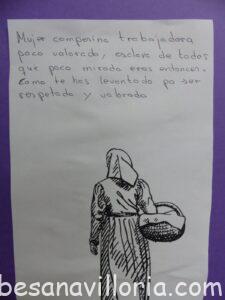 Mujer campesina trabajadora
poco valorada, esclava de todos
que poco mirada eras entonces.
Como te has levantado pa ser
respetada y valorada
besanavilloria.com